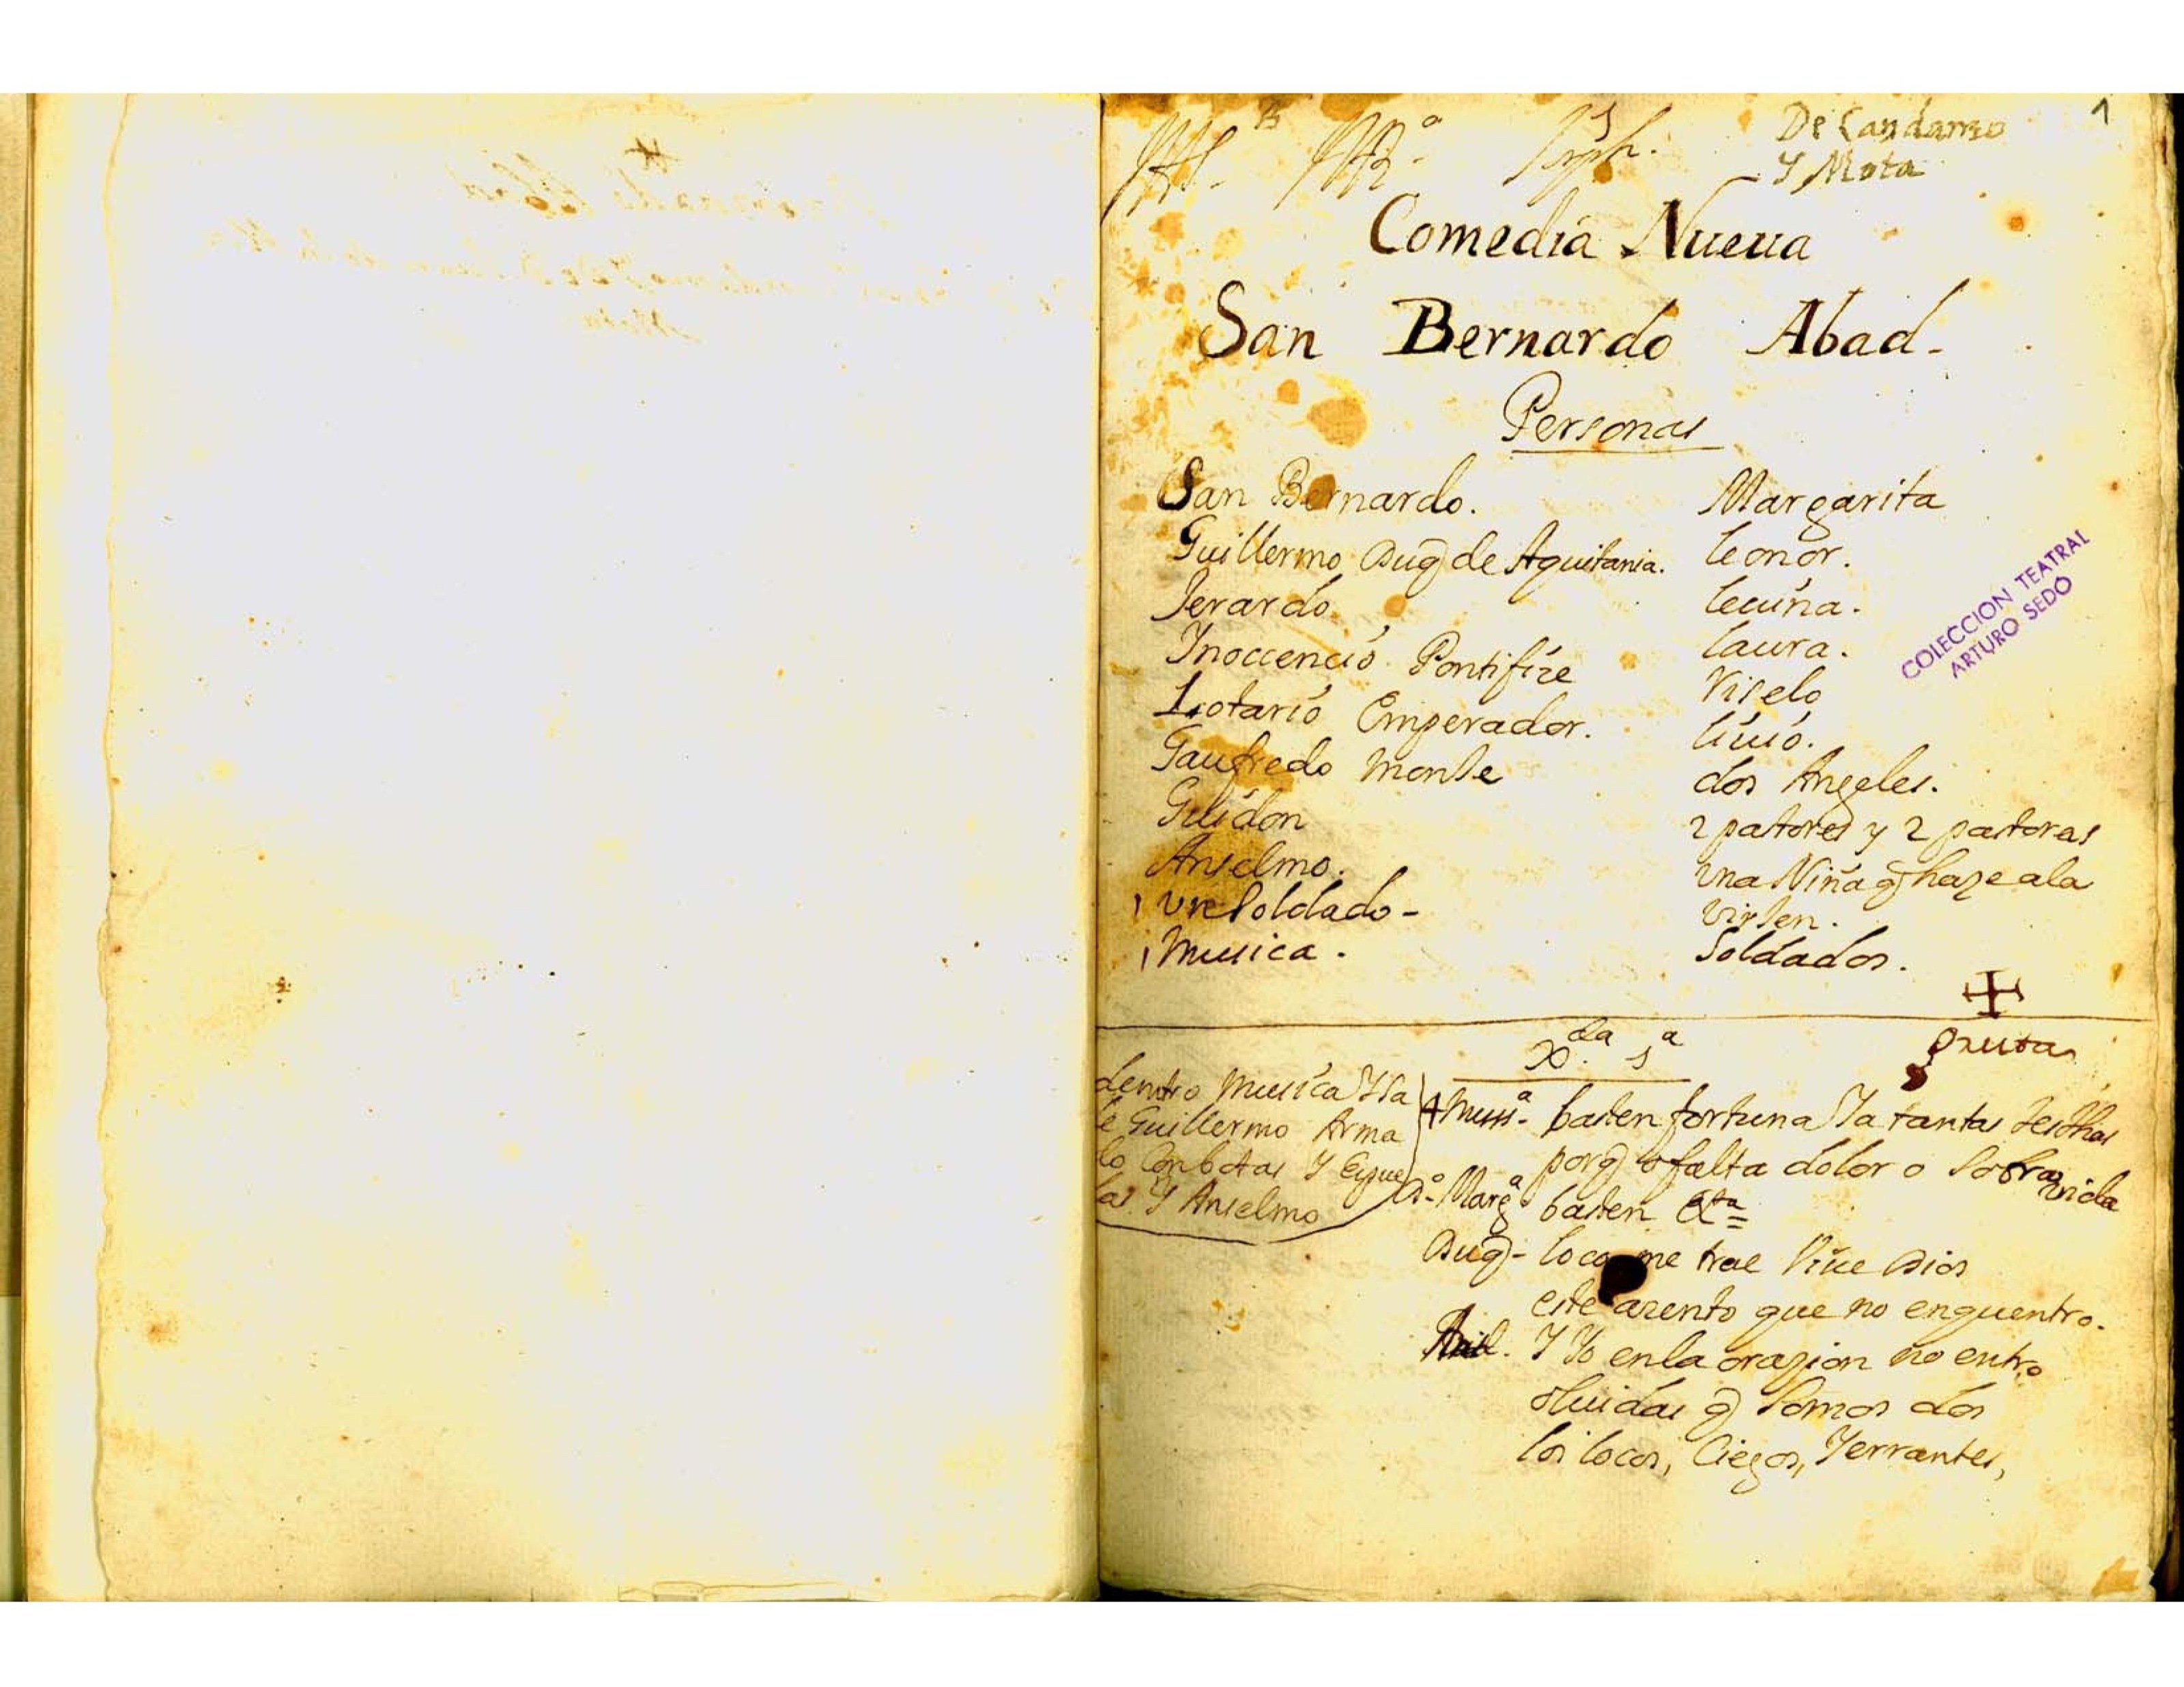 1
De Candamo
Y Mota
Jhs. Mª. Jph.
Comedia Nueua
San Bernardo Abad-
Personas
San Bernardo.
Guillermo Duq de Aquitania.
Jerardo.
Ynoccencio Pontifize
Lotario Emperador.
Gaufredo monje
Guidon
Anselmo.
vn Soldado-
musica.
Margarita
leonor.
lecina.
laura.
Viselo
liuio.
dos Angeles.
2 pastores y 2 pastoras
vna Niña q haze ala
virjen.
Soldados.
COLECCION TEATRAL
ARTURO SEDO
Xda 1a
Gruta
dentro musica Y Sa
le Guillermo Arma
do Con botas Y Espue
las Y Anselmo
Mussª- basten fortuna Ya tantas
porq o falta dolor o Sobra vida
Dº Margª basten &ta
Duq- loco me trae Viue Dios
este azento que no enquentro.
Ansel. Y Yo en la orazion no entro
oluidas q Somos dos
los locos, Ciegos, Yerrantes,